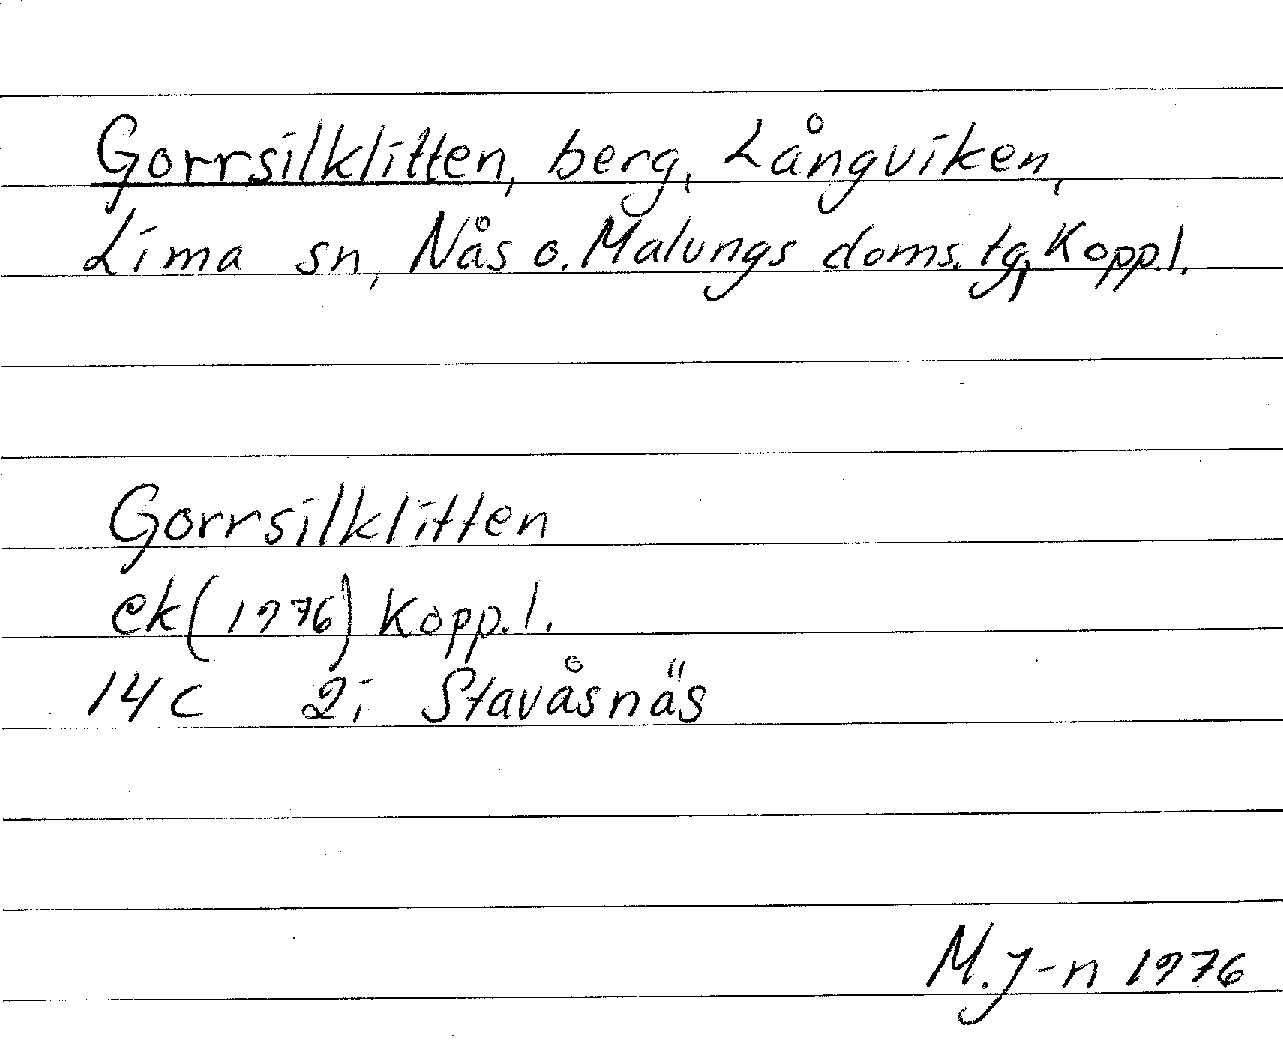 Gorrsilklitten, berg, Långviken,
Lima sn, Nås o. Malungs doms. tg, Kopp.l.
Gorrsilklitten
ek (1976) Kopp.l.
14c 2i Stavåsnäs
M.J-n 1976